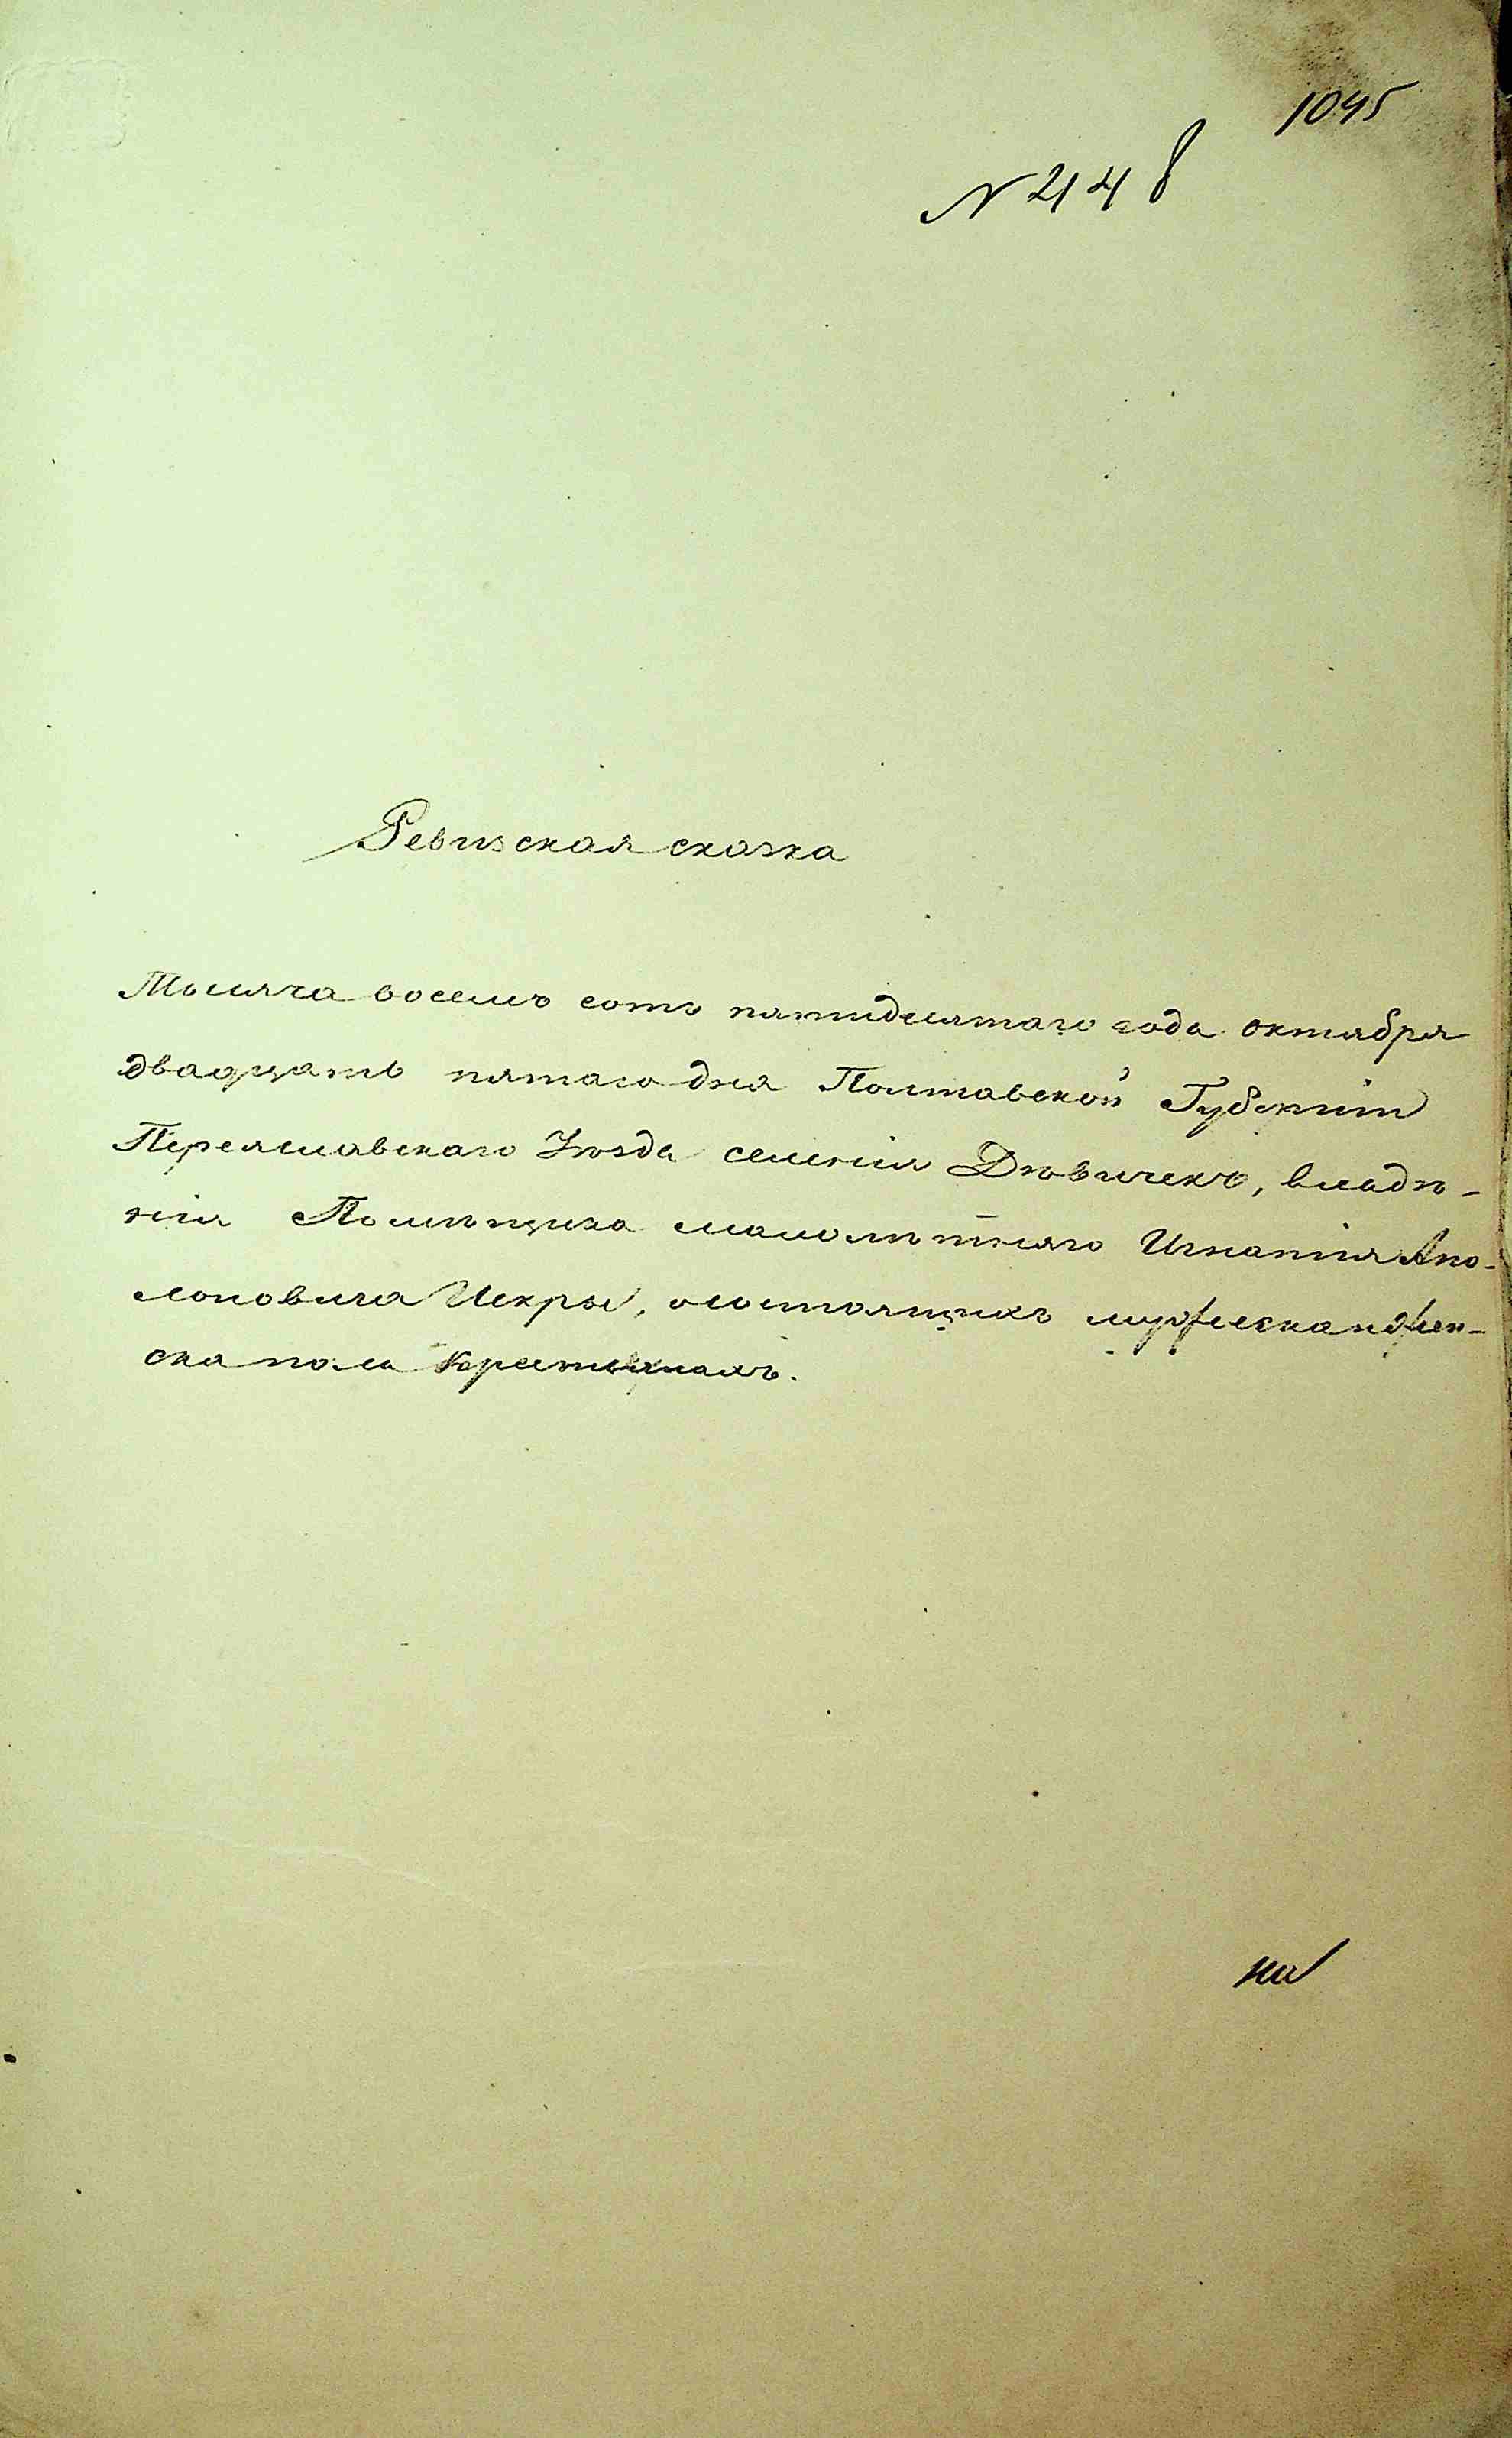 1045
N 2148
Ревизская сказка
Тысяча восемь сотъ пятидесятаго года октября
двадцать пятаго дня Полтавской Губерніи
Переяславскаго Уѣзда селенія Дѣвичекъ, владѣ-
нія Помѣщика малолѣтняго Игнатія Апо-
лоновича Искры, о состоящихъ мужеска и жен-
ска пола крестьянахъ.